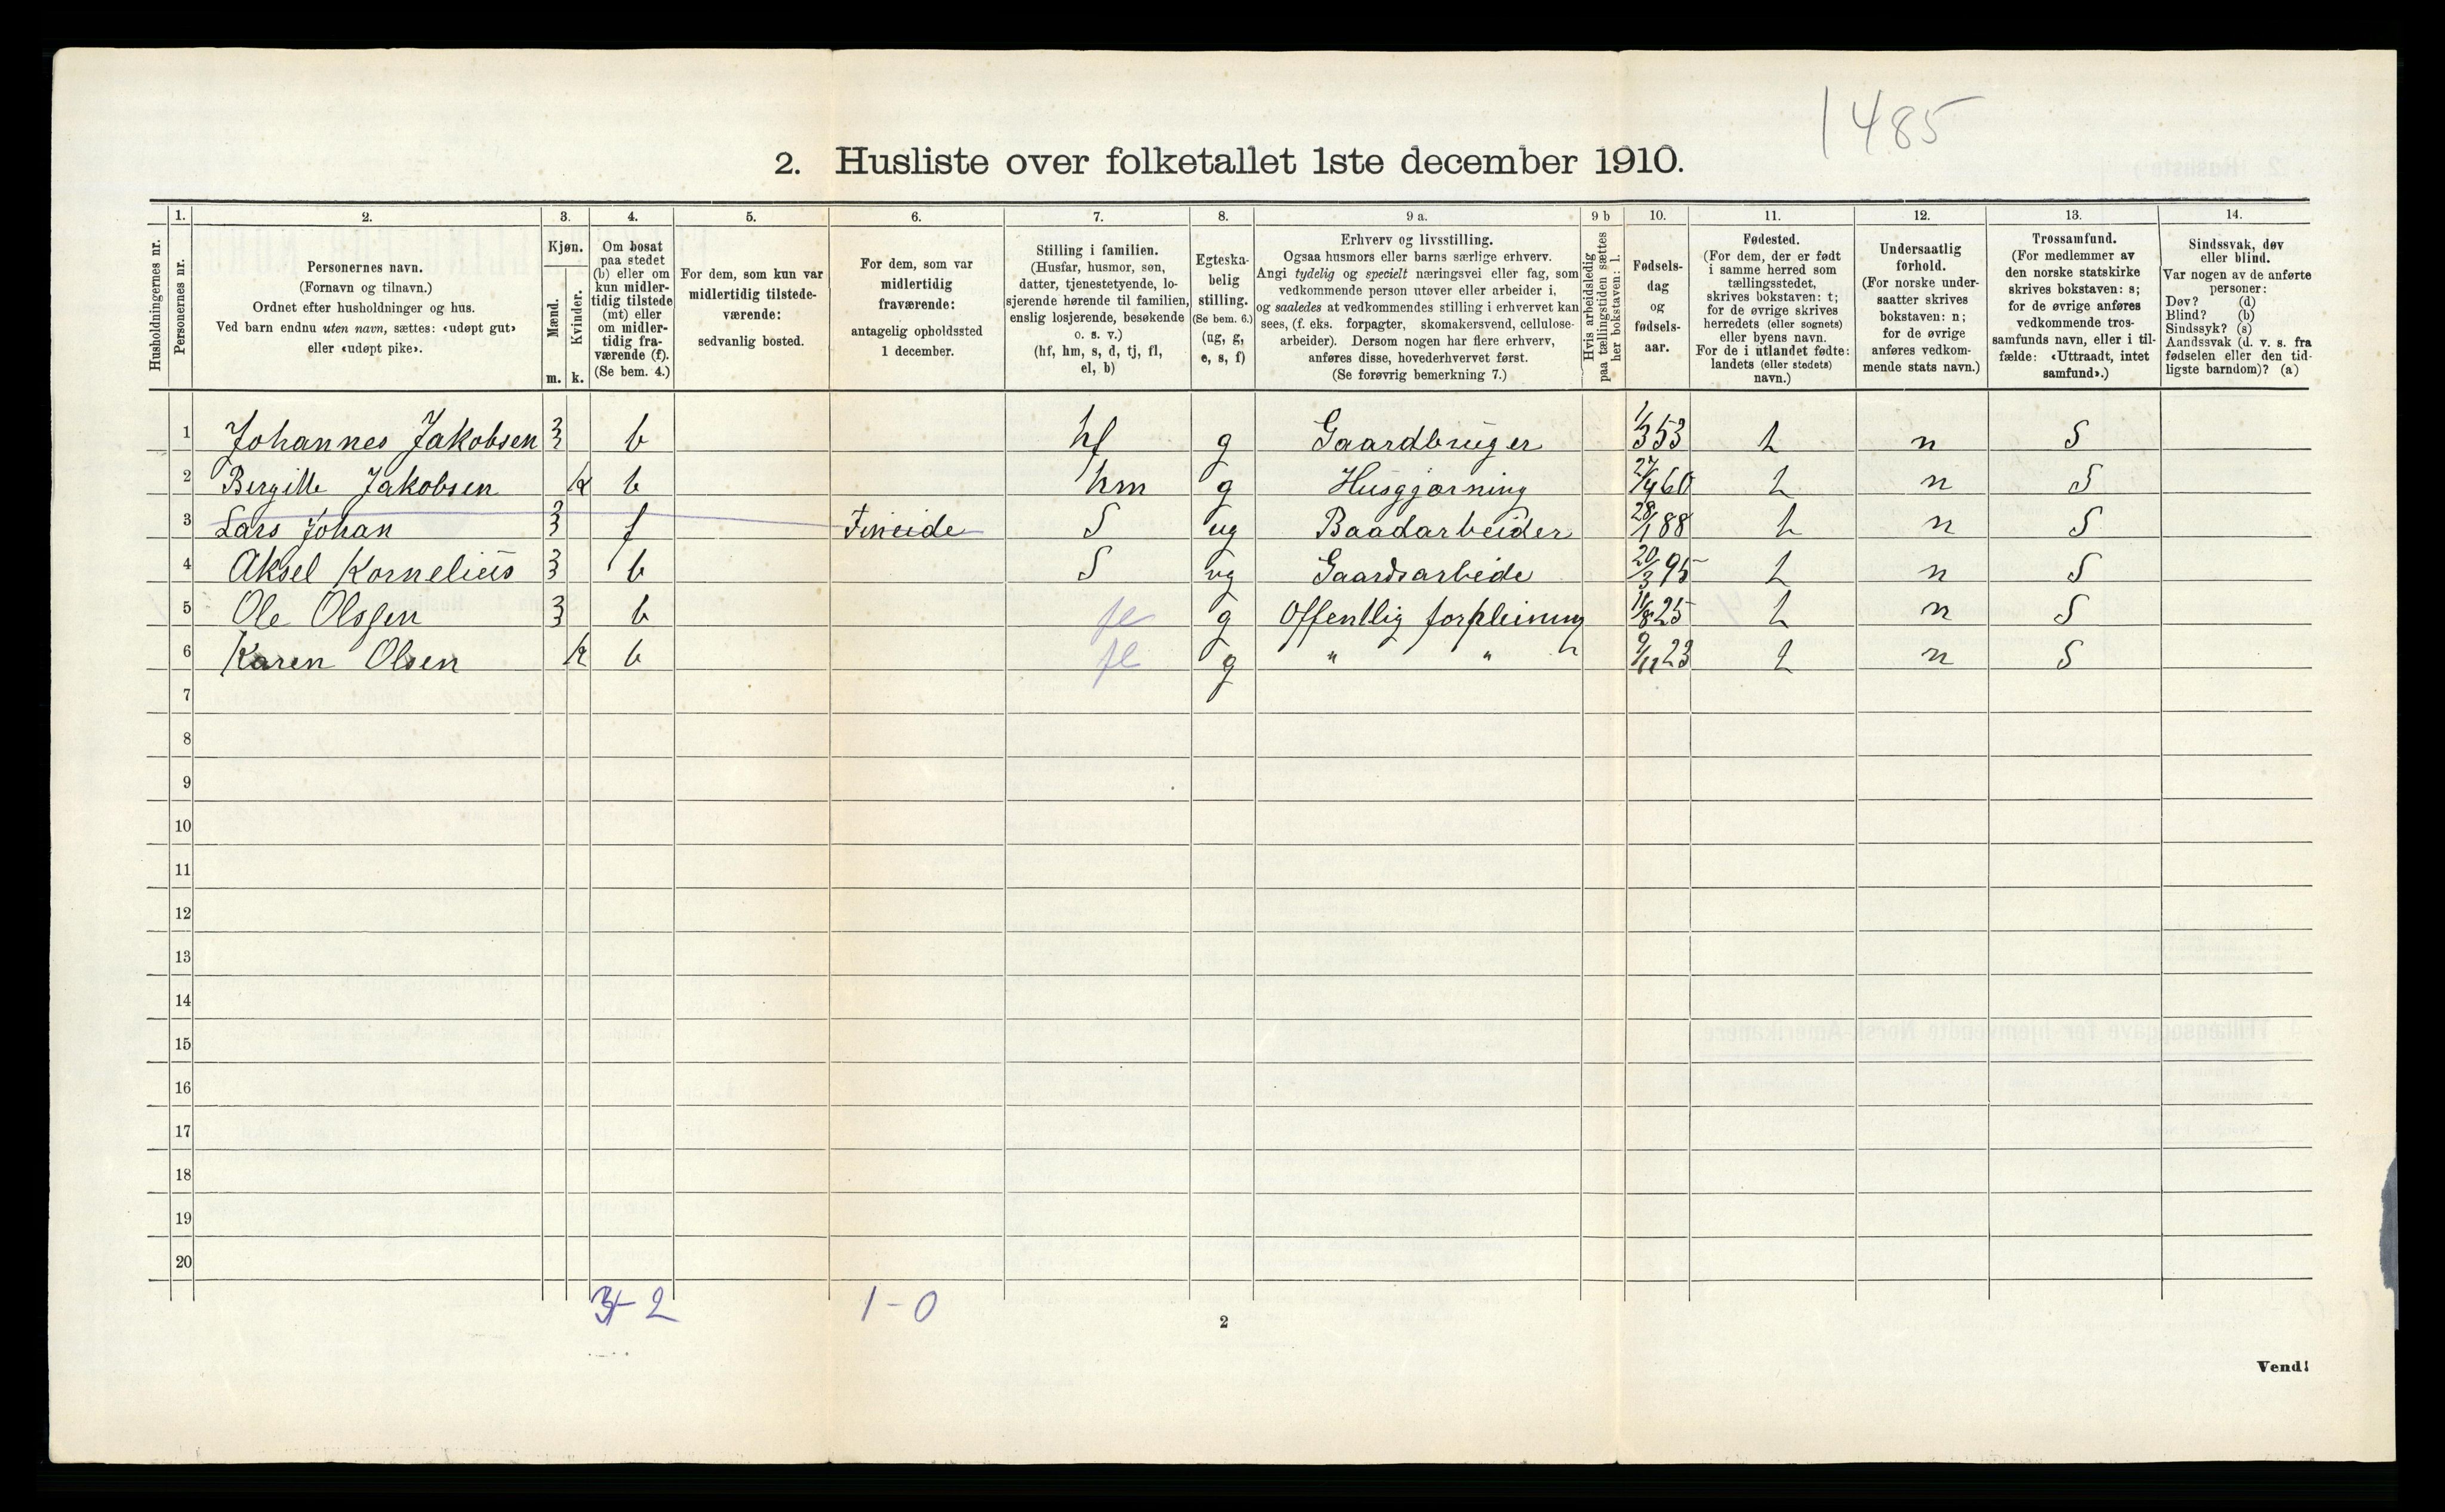 1485
2. Husliste over folketallet 1ste december 1910.
Husholdningernes nr.
1.
Personernes nr.
2.
Personernes navn.
(Fornavn og tilnavn.)
Ordnet efter husholdninger og hus.
Ved barn endnu uten navn, sættes: «udøpt gut»
eller «udøpt pike».
3.
Kjøn.
Mænd.
Kvinder.
m. k.
4.
Om bosat
paa stedet
(b) eller om
kun midler-
tidig tilstede
(mt) eller
om midler-
tidig fra-
værende (f).
(Se bem. 4.)
5.
For dem, som kun var
midlertidig tilstede-
værende:
sedvanlig bosted.
6.
For dem, som var
midlertidig
fraværende:
antagelig opholdssted
1 december.
7.
Stilling i familien.
(Husfar, husmor, søn,
datter, tjenestetyende, lo-
sjerende hørende til familien,
enslig losjerende, besøkende
o. s. v.)
(hf, hm, s, d, tj, fl,
el, b)
8.
Egteska-
belig
stilling.
(Se bem. 6.)
(ug, g,
e, s, f)
9 a.
Erhverv og livsstilling.
Ogsaa husmors eller barns særlige erhverv.
Angi tydelig og specielt næringsvei eller fag, som
vedkommende person utøver eller arbeider i,
og saaledes at vedkommendes stilling i erhvervet kan
sees, (f. eks. forpagter, skomakersvend, cellulose-
arbeider). Dersom nogen har flere erhverv,
anføres disse, hovederhvervet først.
(Se forøvrig bemerkning 7.)
9 b
Hvis arbeidsledig
paa tællingstiden sættes
her bokstaven: l.
10.
Fødsels-
dag
og
fødsels-
aar.
11.
Fødested.
(For dem, der er født
i samme herred som
tællingsstedet,
skrives bokstaven: t;
for de øvrige skrives
herredets (eller sognets)
eller byens navn.
For de i utlandet fødte:
landets (eller stedets)
navn.)
12.
Undersaatlig
forhold.
(For norske under-
saatter skrives
bokstaven: n;
for de øvrige
anføres vedkom-
mende stats navn.)
13.
Trossamfund.
(For medlemmer av
den norske statskirke
skrives bokstaven: s;
for de øvrige anføres
vedkommende tros-
samfunds navn, eller i til-
fælde: «Uttraadt, intet
samfund».)
14.
Sindssvak, døv
eller blind.
Var nogen av de anførte
personer:
Døv? (d)
Blind? (b)
Sindssyk? (s)
Aandssvak (d. v. s. fra
fødselen eller den tid-
ligste barndom)? (a)
1 Johannes Jakobsen b hf g Gaardbruger 1/3 53 n S
2 Bergitte Jakobsen k b hm g Husgjørning 27/9 60 n S
3 Lars Johan f Fineide S ug Baadarbeider 28/1 88 n S
4 Aksel Kornelius b S ug Gaardsarbeide 20/3 95 n S
5 Ole Olsen b fl g Offentlig forpleining 11/8 25 n S
6 Karen Olsen k b fl g " " 9/11 23 n S
7 g
8
9
10
11
12
13
14
15
16
17
18
19
20
2
1 - 0
2
Vend!